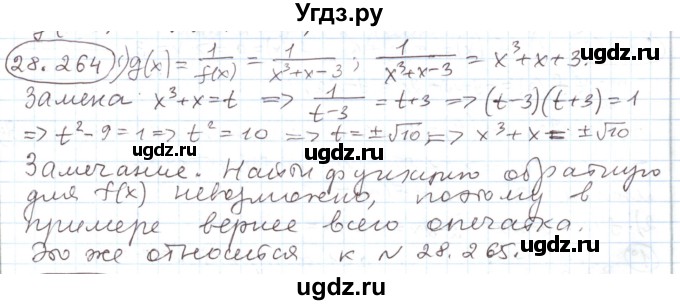 Угдз.ру
28.264 1) g(x) = 1/f(x) = 1/(x³+x-3); 1/(x³+x-3) = x³+x+3.
Замена x³+x=t => 1/(t-3) = t+3 => (t-3)(t+3)=1
=> t²-9=1 => t²=10 => t=±√10 => x³+x=±√10
Замечание. Найти функцию обратную
для f(x) невозможно, поэтому в
примере вернее всего опечатка.
Это же относится к N 28.265.
Угдз.ру